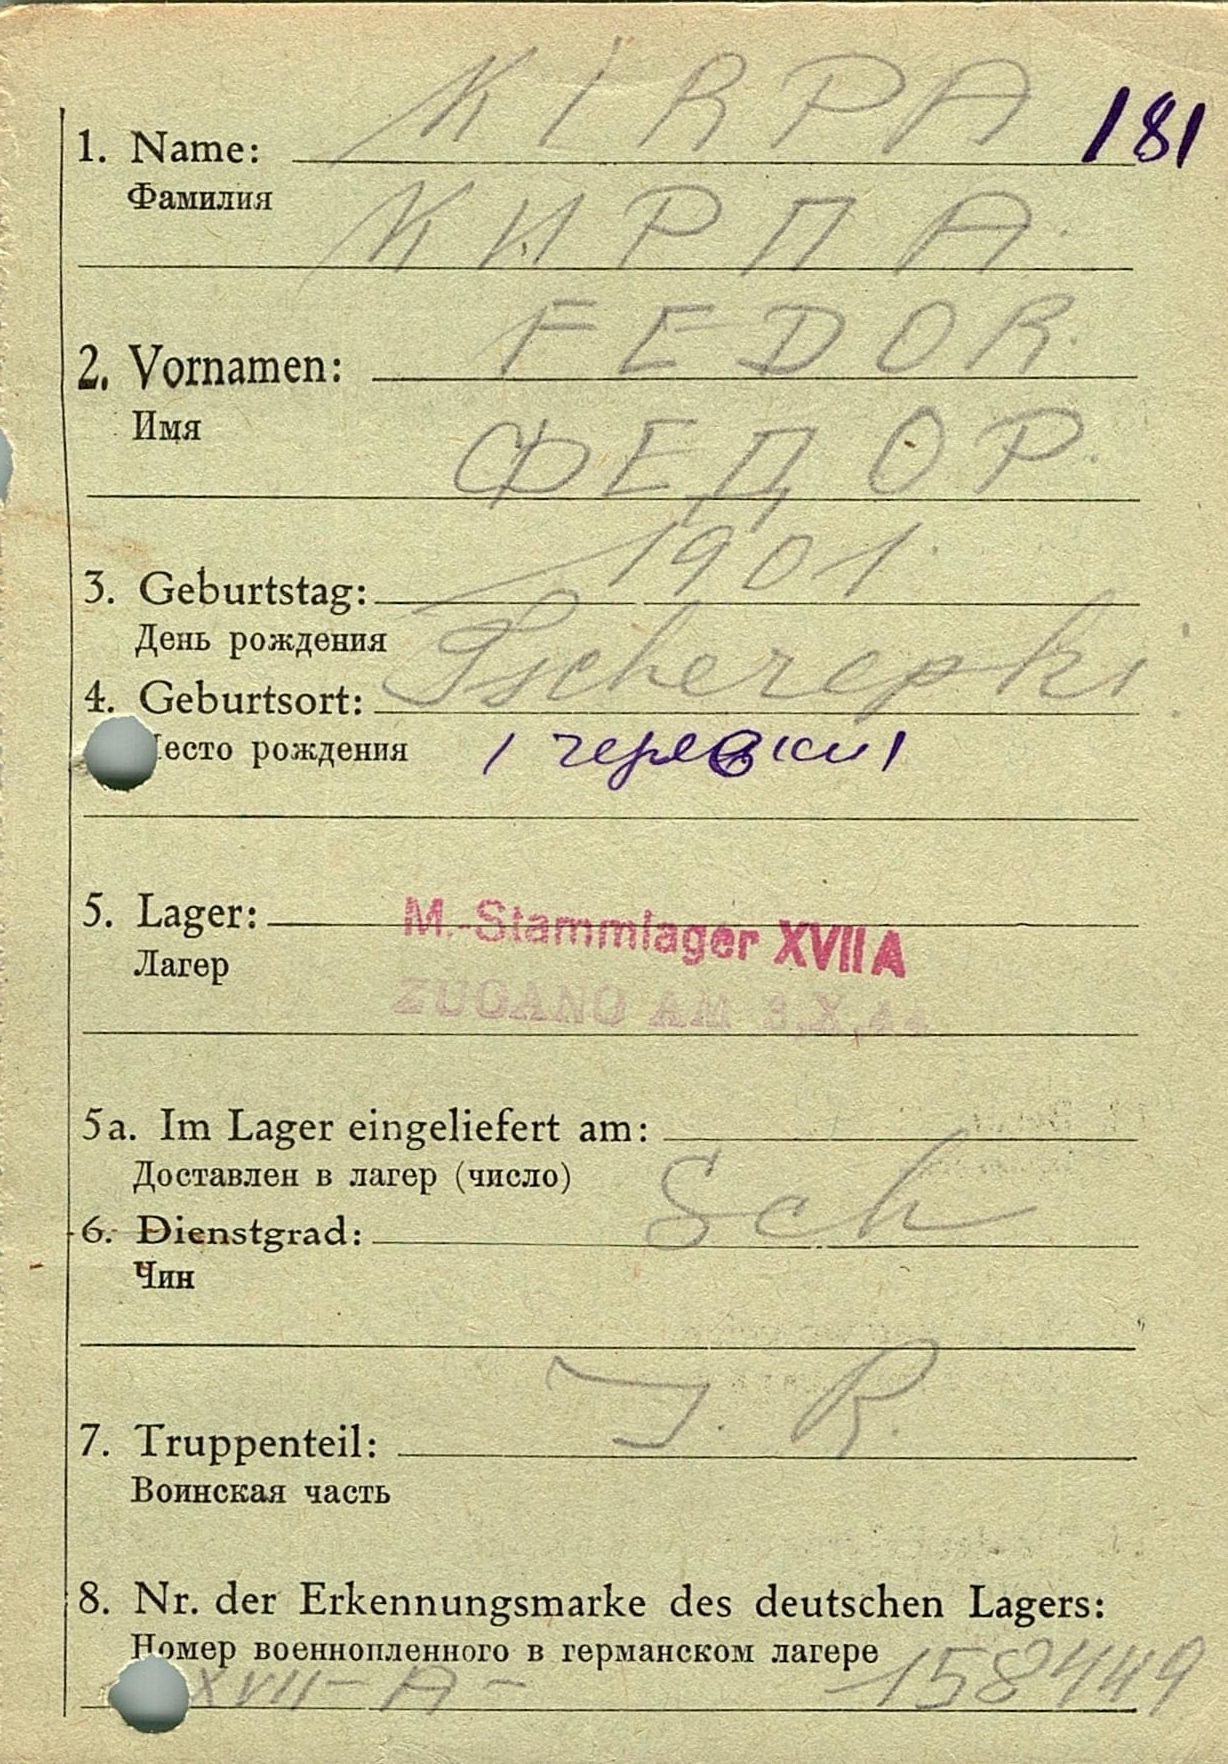 KIRPA 181
1. Name:
Фамилия
КИРПА.
FEDOR.
2. Vornamen:
Имя
ФЕДОР.
1901.
3. Geburtstag:
День рождения
Tscherepki
4. Geburtsort:
есто рождения
5. Lager: M.-Stammlager XVII A
Лагер
ZUGANG AM 3.X.44
5a. Im Lager eingeliefert am:
Доставлен в лагер (число)
Sch
6. Dienstgrad:
Чин
J. R.
7. Truppenteil:
Воинская часть
8. Nr. der Erkennungsmarke des deutschen Lagers:
Номер военнопленного в германском лагере
XVII-A- 158449